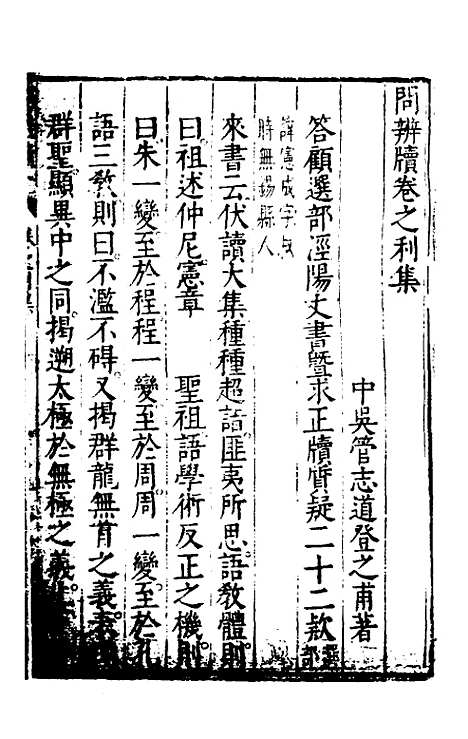 問辨牘卷之利集
中吳管志道登之甫著
答顧選部涇陽丈書暨求正牘質疑二十二款
諱憲成字叔
時無錫縣人
來書云伏讀大集種種超詣匪夷所思語敎體則
曰祖述仲尼憲章　聖祖語學術反正之機則
曰朱一變至於程程一變至於周周一變至於孔
語三敎則曰不濫不碍又揭群龍無首之義
群聖顯異中之同揭遡太極於無極之義